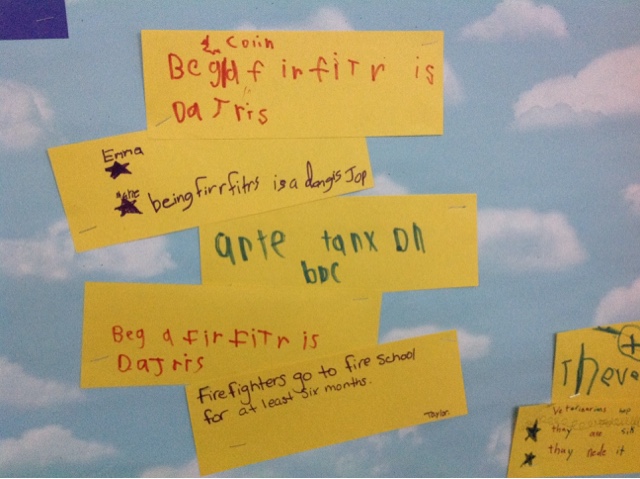 Coiin
Begd firfiTr is
DaJris
Emna
being firrfitrs is a dangis Jop
arte tanx on
bac
Beg a firfiTr is
DaJris
Firefighters go to fire school
for at least six months.
Taylor
Theve
Veterinarians
thay are sik
thay made it